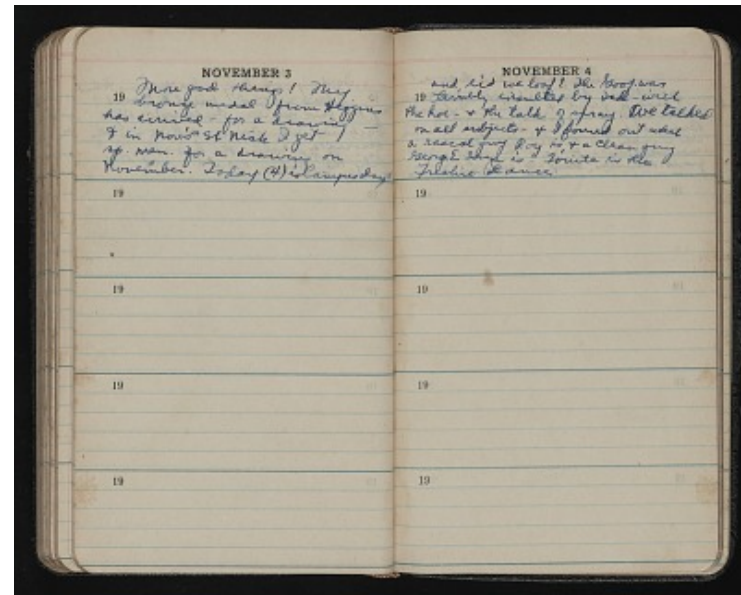 NOVEMBER 3
More good things! My
19 bronze medal from Higgins
has arrived - for a drawing -
& in Nov's St Nick I get
for a drawing on
November. Today (4) is campus day!
19
19
19
19
NOVEMBER 4
and did we loaf! The Goof was
19 terribly insulted by
the hat - & the talk We talked
on all subjects - & I found out what
a rascal guy Roy is & a clean guy
George is
19
19
19
19